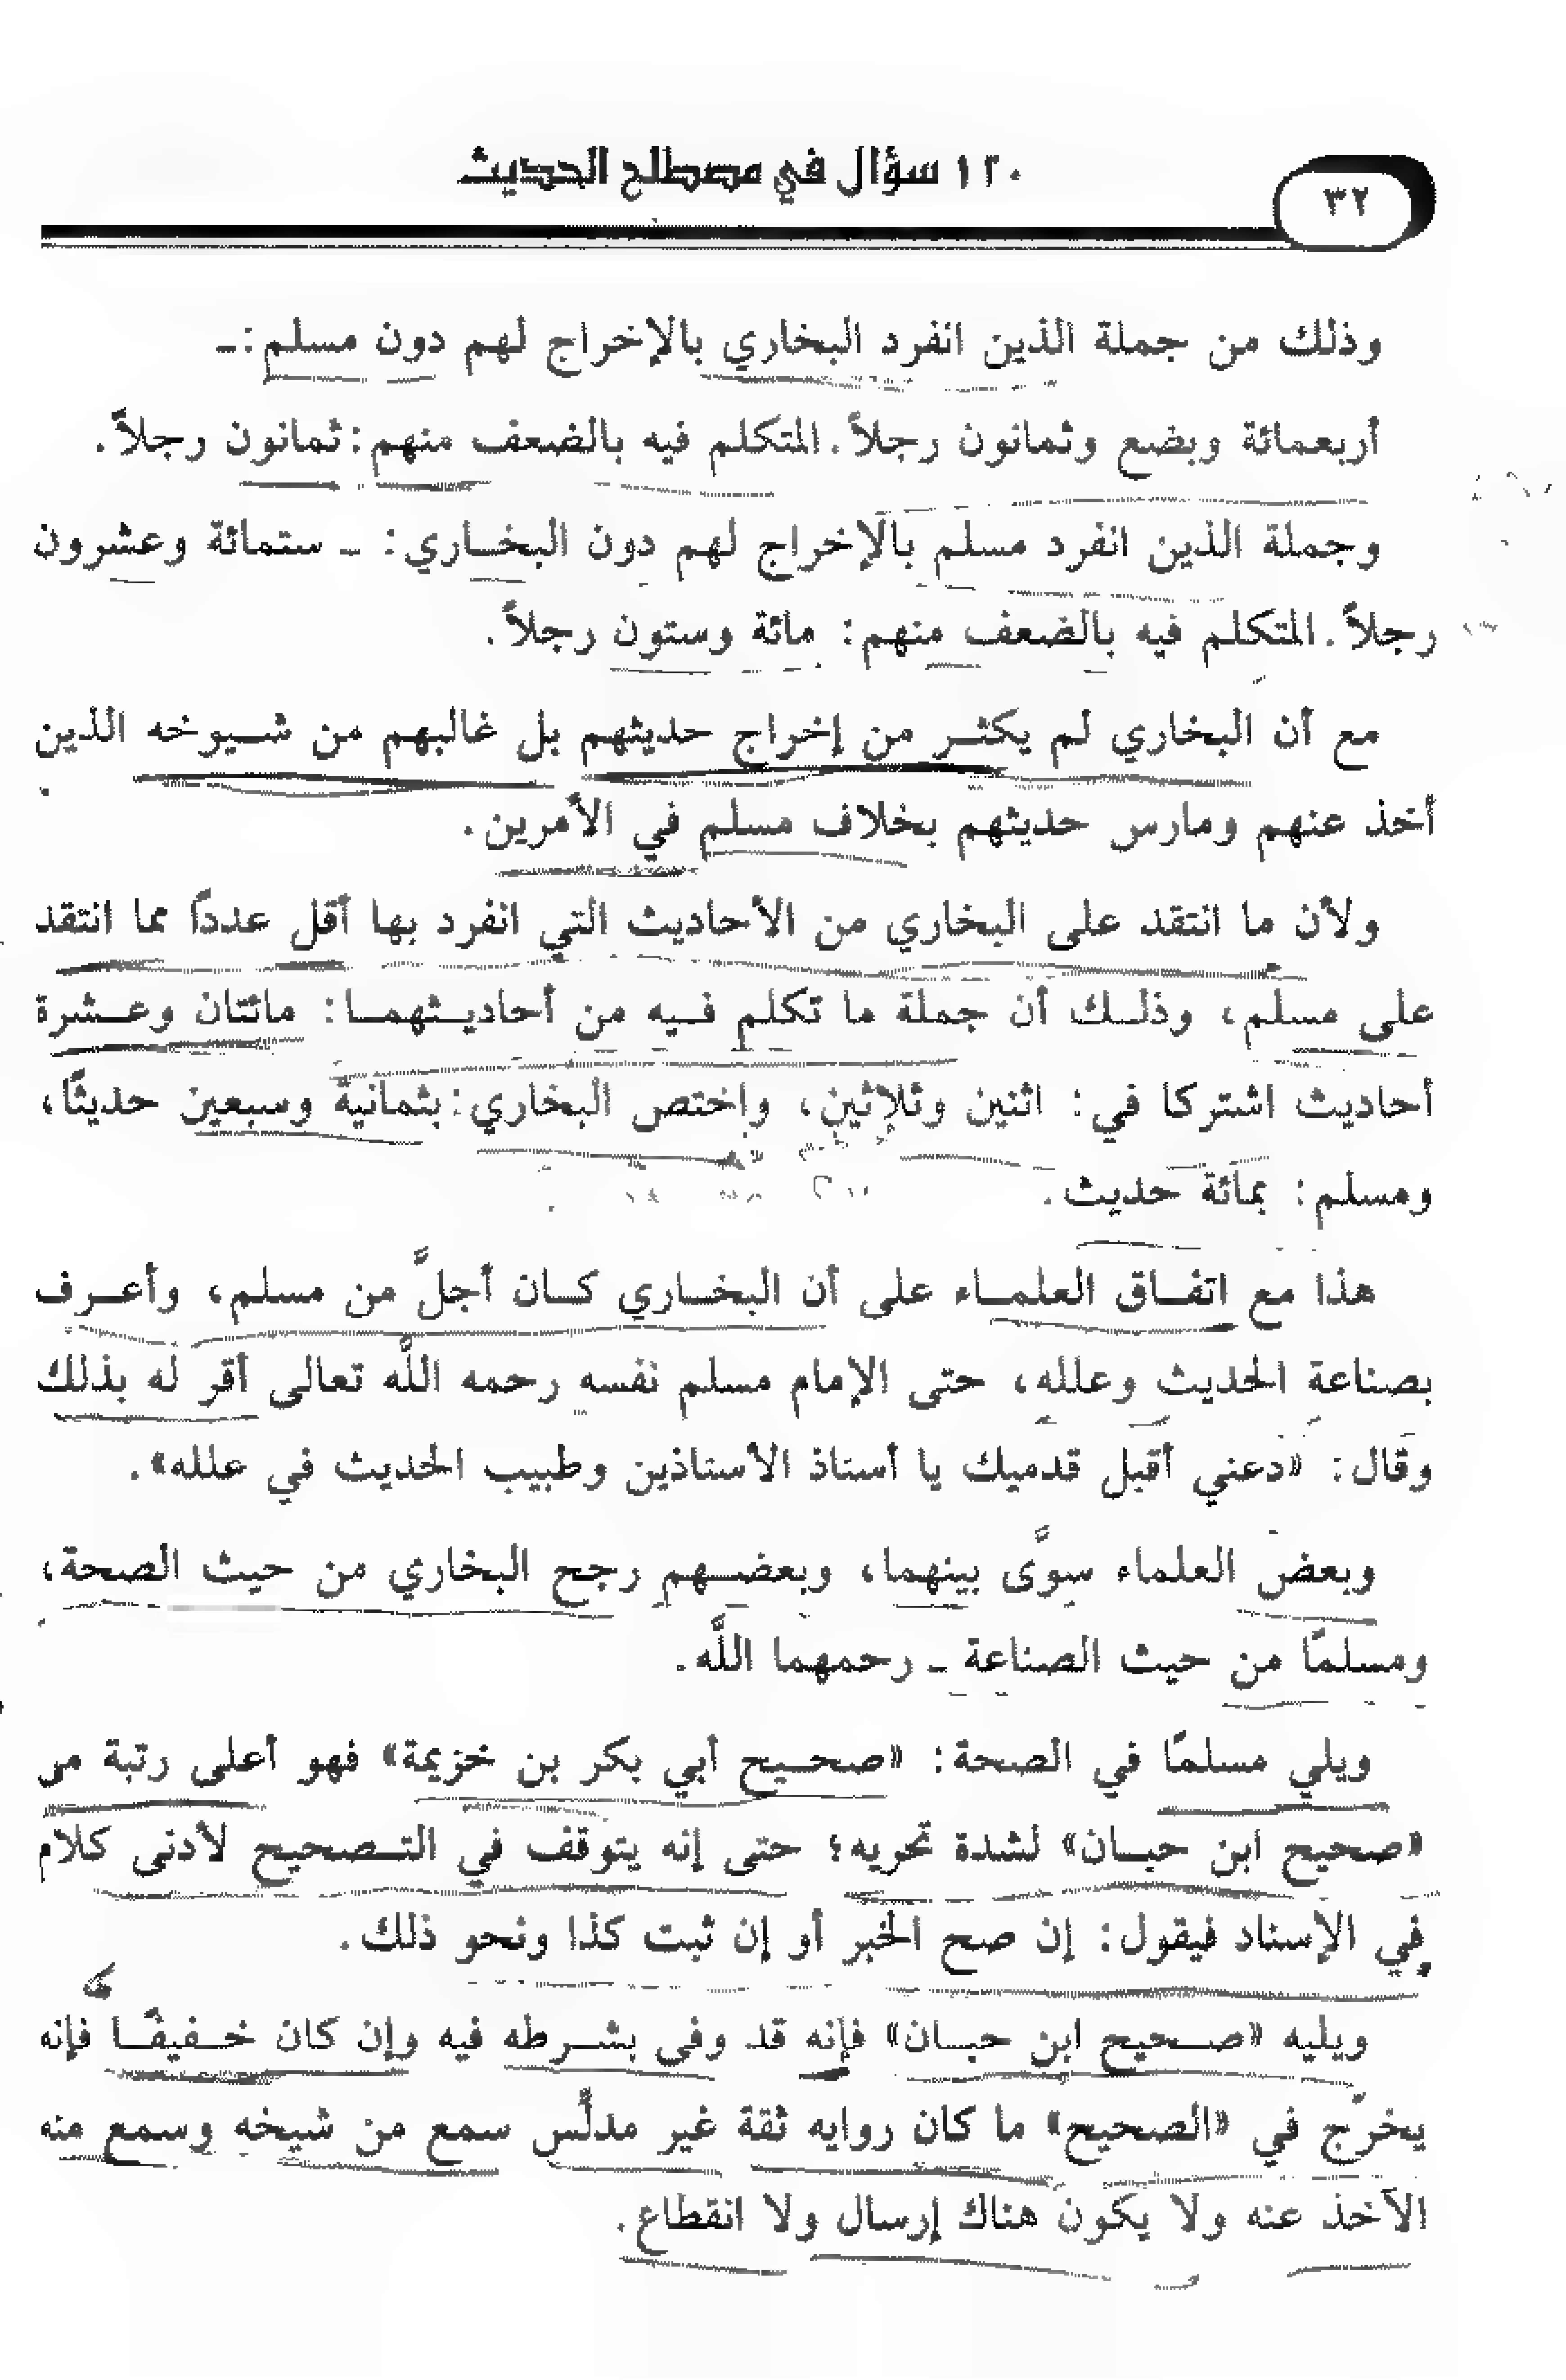 ١٢٠ سؤال في مصطلح الحديث
٣٢
وذلك من جملة الذين انفرد البخاري بالإخراج لهم دون مسلم:ـ
أربعمائة وبضع وثمانون رجلاً. المتكلم فيه بالضعف منهم: ثمانون رجلاً.
وجملة الذين انفرد مسلم بالإخراج لهم دون البخـاري: ـ ستمائة وعشرون
رجلاً. المتكلم فيه بالضعف منهم: مائة وستون رجلاً.
مع أن البخاري لم يكثـر من إخراج حديثهم بل غالبهم من شـيوخه الذين
أخذ عنهم ومارس حديثهم بخلاف مسلم في الأمرين.
ولأن ما انتقد على البخاري من الأحاديث التي انفرد بها أقل عددًا مما انتقد
على مسلم، وذلـك أن جملة ما تكلم فـيه من أحاديـثهمـا: مائتان وعـشرة
أحاديث اشتركا في: اثنين وثلاثين، واختص البخاري: بثمانية وسبعين حديثًا،
ومسلم: بمائة حديث.
هذا مع اتفـاق العلمـاء على أن البخـاري كـان أجلَّ من مسلم، وأعـرف
بصناعة الحديث وعلله، حتى الإمام مسلم نفسه رحمه اللَّه تعالى أقر له بذلك
وقال: «دعني أقبل قدميك يا أستاذ الأستاذين وطبيب الحديث في علله».
وبعض العلماء سوَّى بينهما، وبعضـهم رجح البخاري من حيث الصحة،
ومسلمًا من حيث الصناعة ـ رحمهما اللَّه.
ويلي مسلمًا في الصحة: «صحـيح أبي بكر بن خزيمة» فهو أعلى رتبة من
«صحيح ابن حبـان» لشدة تحريه؛ حتى إنه يتوقف في التـصحيح لأدنى كلام
في الإسناد فيقول: إن صح الخبر أو إن ثبت كذا ونحو ذلك.
ويليه «صـحيح ابن حبـان» فإنه قد وفى بشـرطه فيه وإن كان خـفيفًـا فإنه
يخرّج في «الصحيح» ما كان روايه ثقة غير مدلِّس سمع من شيخه وسمع منه
الآخذ عنه ولا يكون هناك إرسال ولا انقطاع.